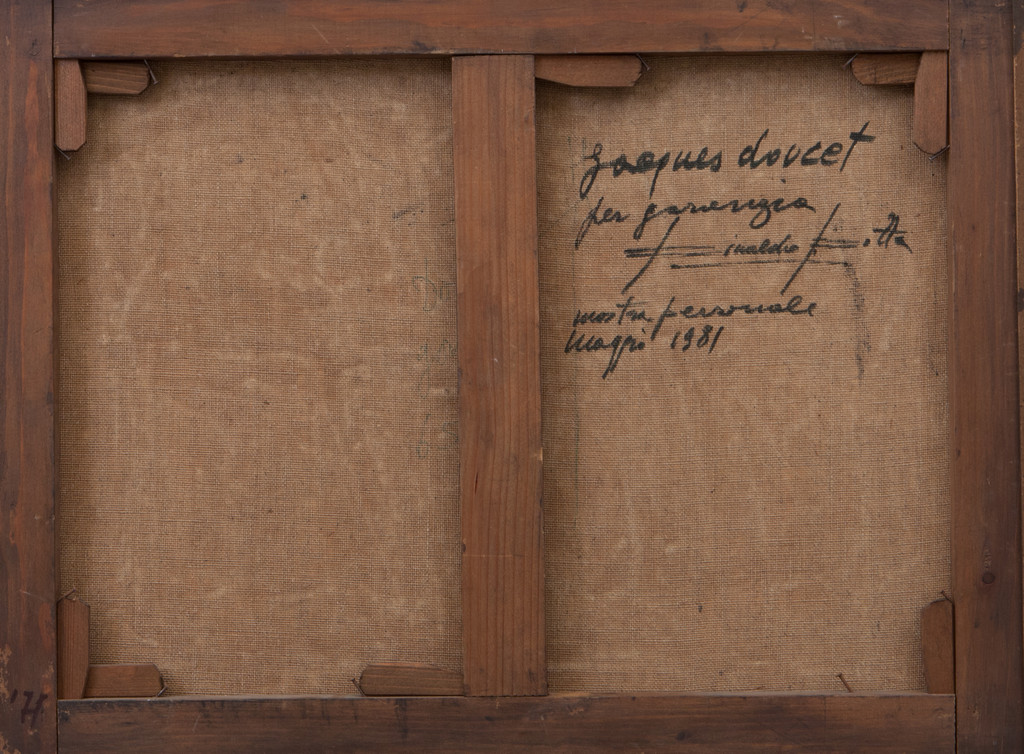 Jacques doucet
per garenzia
inaldo
mostra personale
Maggio 1981
H